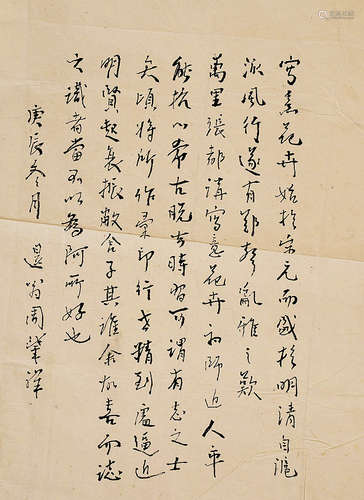 寫意花卉始於宋元而盛於明清自滬
派風行遂有鄭聲亂雅之歎
萬里張都講寫意花卉初師近人帚
能抗心希古脫去時習可謂有志之士
矣頃將所作彙印行世精到處逼近
明賢起衰振敝舍子其誰余故喜而誌
之識者當不以為阿所好也
庚辰冬月 退翁周肇祥